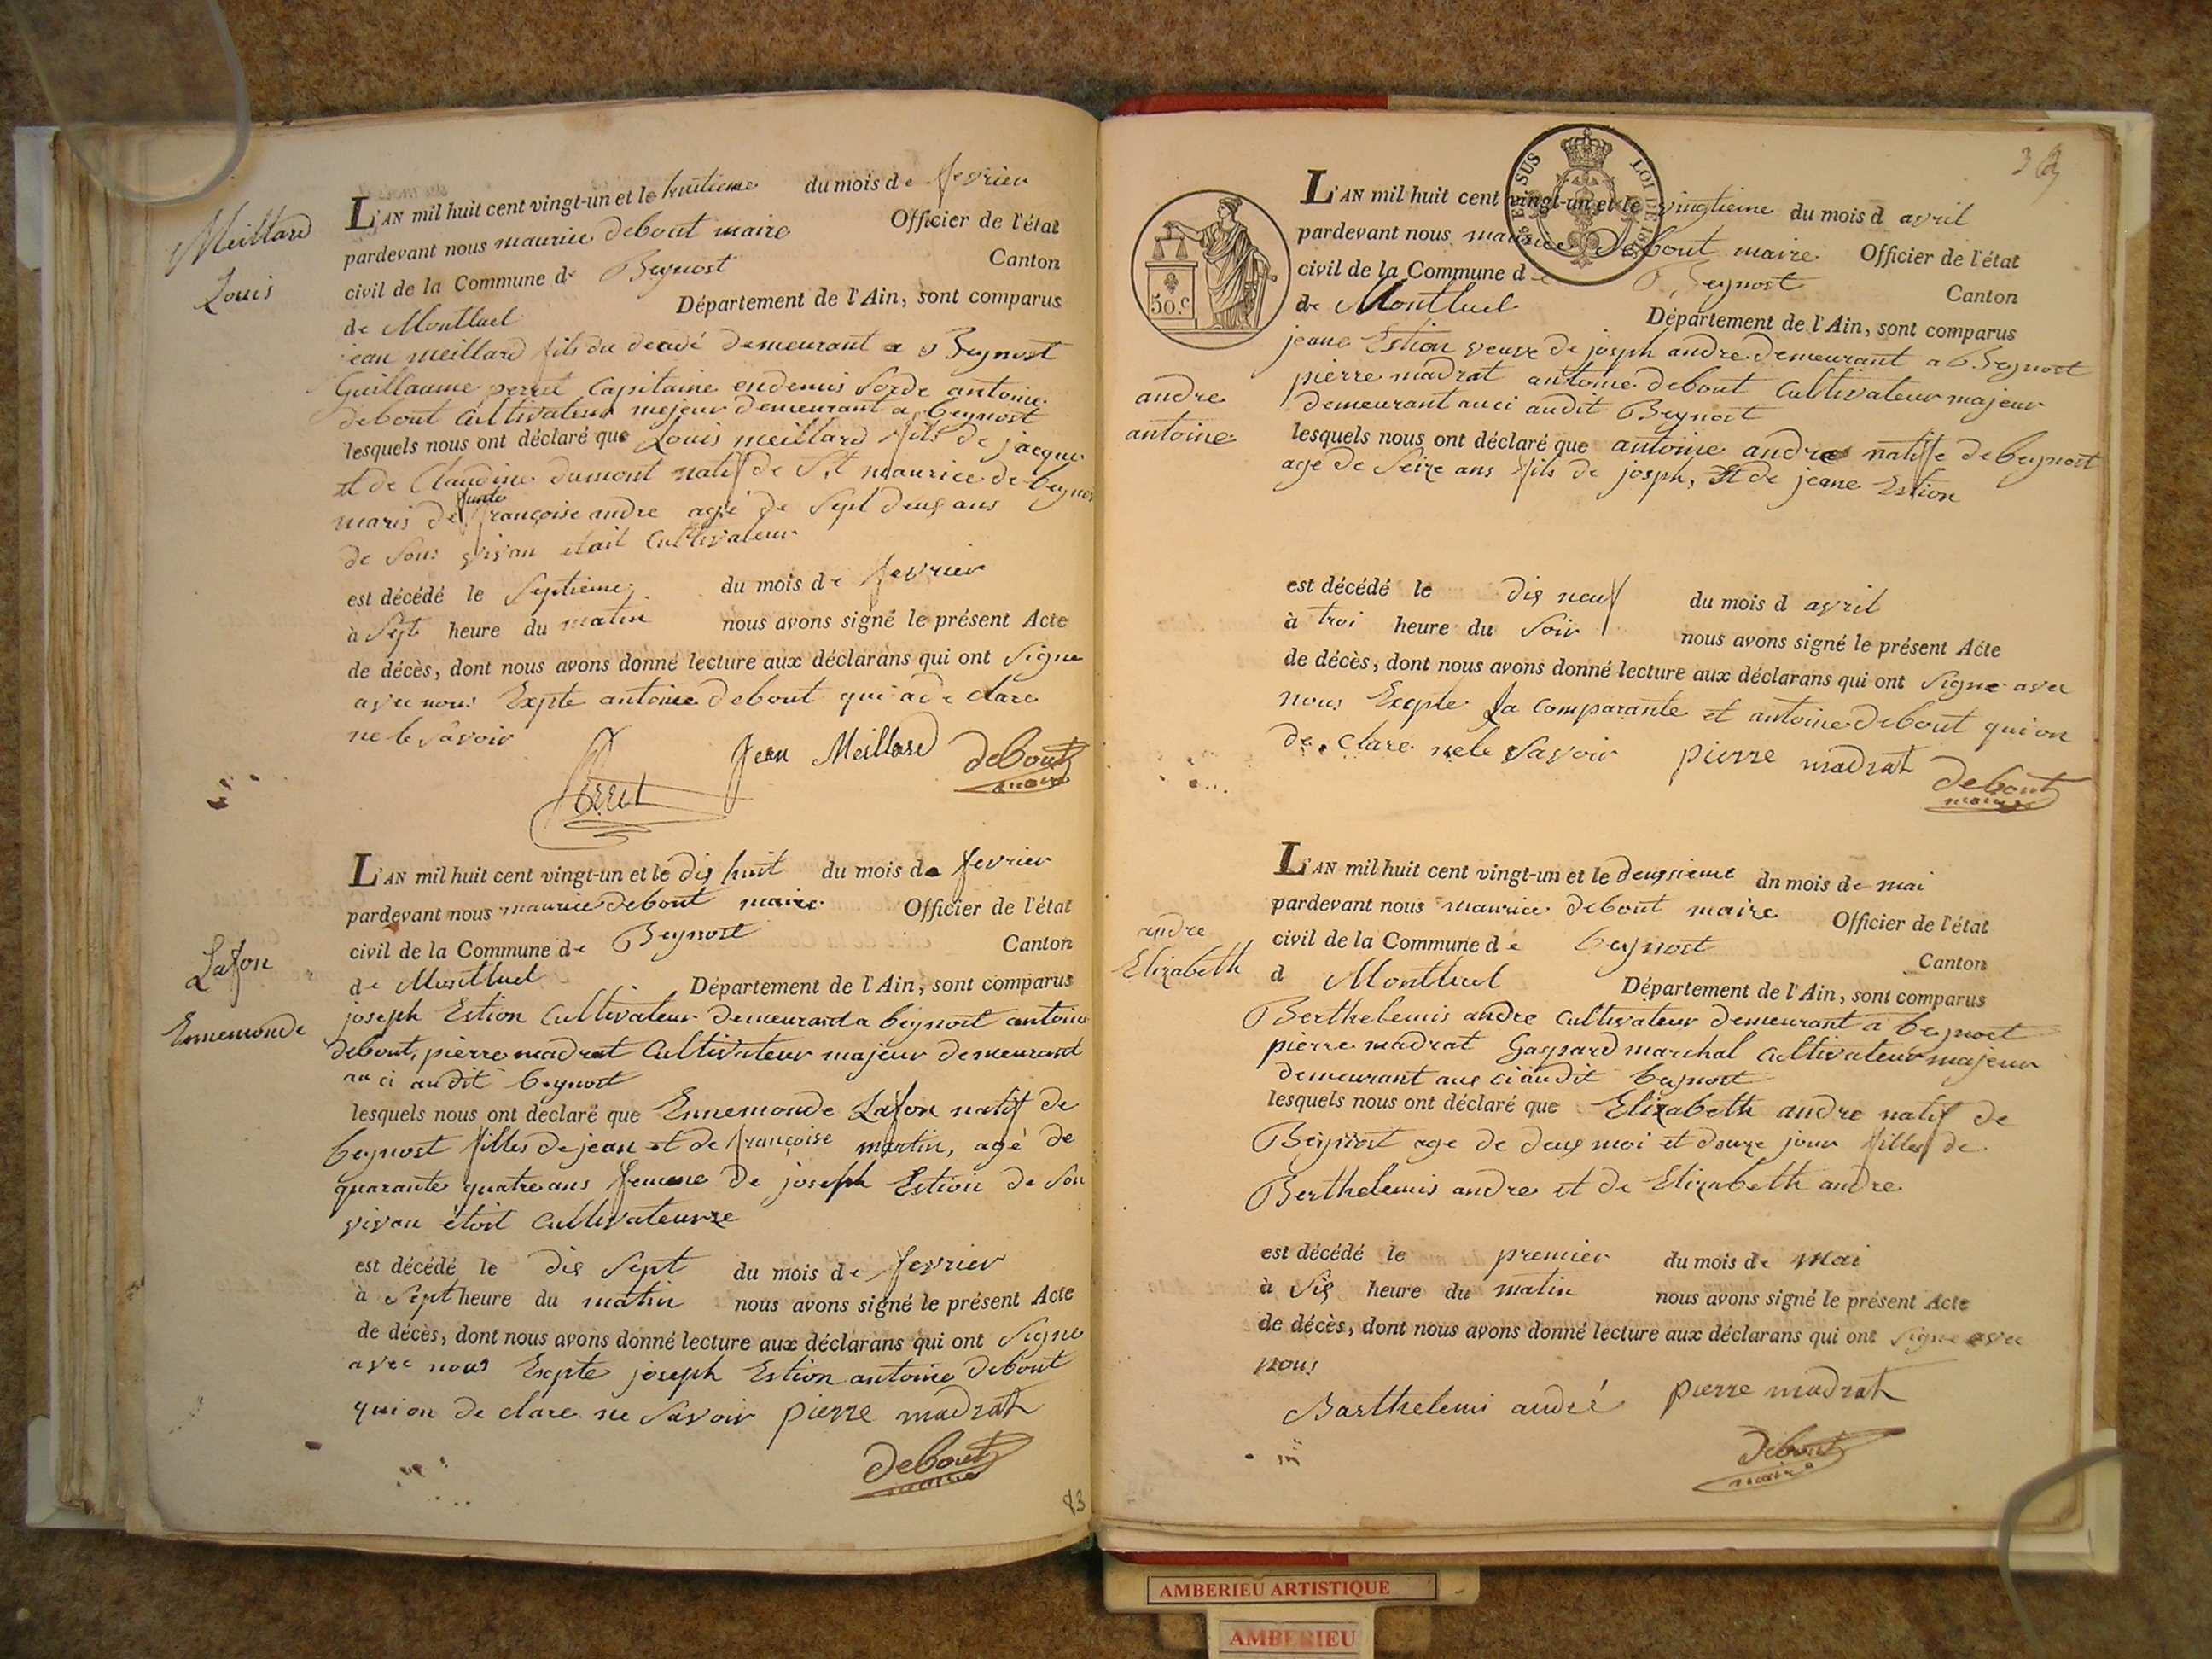 Meillard
Louis
L'AN mil huit cent vingt-un et le huitieme du mois de fevrier
pardevant nous maurice debout maire Officier de l'état
civil de la Commune de Beynost Canton
de Montluel Département de l'Ain, sont comparus
jean meillard fils du decedé demeurant a Beynost
Guillaume perret Capitaine en demis solde antoine
debout Cultivateur majeur demeurant a beynost
lesquels nous ont déclaré que Louis meillard fils de jacque
et de Claudine dumont natif de St maurice de beynost
maris de funte françoise andre agé de Sept deux ans
de Sons vivan etait Cultivateur
est décédé le Septieme du mois de fevrier
à Sept heure du matin nous avons signé le présent Acte
de décès, dont nous avons donné lecture aux déclarans qui ont Signe
avec nous Expte antoine debout qui a de clare
ne le Savoir
Perret Jean Meillard debout
maire
Lafon
Ennemonde
L'AN mil huit cent vingt-un et le dix huit du mois de fevrier
pardevant nous maurice debout maire Officier de l'état
civil de la Commune de Beynost Canton
de Montluel Département de l'Ain, sont comparus
joseph Estion Cultivateur demeurant a beynost antoine
debout, pierre madrat Cultivateur majeur demeurant
au ci audit beynost
lesquels nous ont déclaré que Ennemonde Lafon natif de
beynost filles de jean et de françoise martin, agé de
quarante quatre ans femme de joseph Estion de Son
vivan étoit Cultivateurze
est décédé le dix Sept du mois de fevrier
à Sept heure du matin nous avons signé le présent Acte
de décès, dont nous avons donné lecture aux déclarans qui ont Signe
avec nous Expte joseph Estion antoine debout
qui on de clare ne Savoir pierre madrat
debout
maire
83
50.c
SUS LOI DE 1816
L'AN mil huit cent vingt-un et le vingtieme du mois d avril
pardevant nous maurice debout maire Officier de l'état
civil de la Commune de Beynost Canton
de Montluel Département de l'Ain, sont comparus
jeane Estion veuve de josph andre demeurant a Beynost
pierre madrat antoine debout Cultivateur majeur
demeurant au ci audit Beynost
andre
antoine
lesquels nous ont déclaré que antoine andre natiffe de beynost
age de Seize ans fils de josph, Et de jeane Estion
est décédé le dix neuf du mois d avril
à troi heure du Soir nous avons signé le présent Acte
de décès, dont nous avons donné lecture aux déclarans qui ont Signe avec
nous Exepte La comparante et antoine debout qui on
de clare ne le Savoir pierre madrat debout
maire
andre
Elizabeth
L'AN mil huit cent vingt-un et le deuxsieme dn mois de mai
pardevant nous maurice debout maire Officier de l'état
civil de la Commune de beynost Canton
d Montluel Département de l'Ain, sont comparus
Berthelemis andre Cultivateur demeurant a beynost
pierre madrat Gaspard marchal Cultivateur majeur
demeurant aux ci audit beynost
lesquels nous ont déclaré que Elizabeth andre natif de
Beynost age de deux moi et douze jour filles de
Berthelemis andre et de Elizabeth andre
est décédé le premier du mois de mai
à Six heure du matin nous avons signé le présent Acte
de décès, dont nous avons donné lecture aux déclarans qui ont Signe avec
nous
Barthelemi andré pierre madrat
debout
maire
AMBERIEU ARTISTIQUE
AMBERIEU